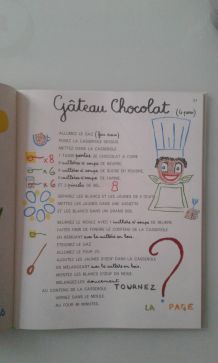 Gâteau Chocolat (6 pers)
ALLUMEZ LE GAZ (feu doux)
POSEZ LA CASSEROLE DESSUS
METTEZ DANS LA CASSEROLE
1 TASSE DE CHOCOLAT À CUIRE
x8 cuillères à soupe DE BEURRE
x6 cuillères à soupe DE SUCRE EN POUDRE
x6 cuillères à soupe DE FARINE
ET 3 pincées DE SEL 8
SÉPAREZ LES BLANCS ET LES JAUNES DE 6 ŒUFS
METTEZ LES JAUNES DANS UNE ASSIETTE
ET LES BLANCS DANS UN GRAND BOL
BEURREZ LE MOULE AVEC 1 cuillère à soupe DE BEURRE
FAITES BIEN FONDRE LE CONTENU DE LA CASSEROLE
EN REMUANT avec la cuillère en bois
ÉTEIGNEZ LE GAZ
ALLUMEZ LE FOUR
AJOUTEZ LES JAUNES D'ŒUF DANS LA CASSEROLE
EN MÉLANGEANT avec la cuillère en bois
MONTEZ LES BLANCS D'ŒUF EN NEIGE
MÉLANGEZ-LES doucement
AU CONTENU DE LA CASSEROLE
VERSEZ DANS LE MOULE
AU FOUR MINUTES
TOURNEZ
LA PAGE
?